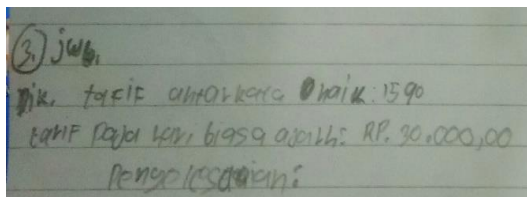 3. jwb.
Dik. tarif antarkota naik: 15%
tarif pada hari biasa adalh: RP. 30.000,00
Pengelesdaian: